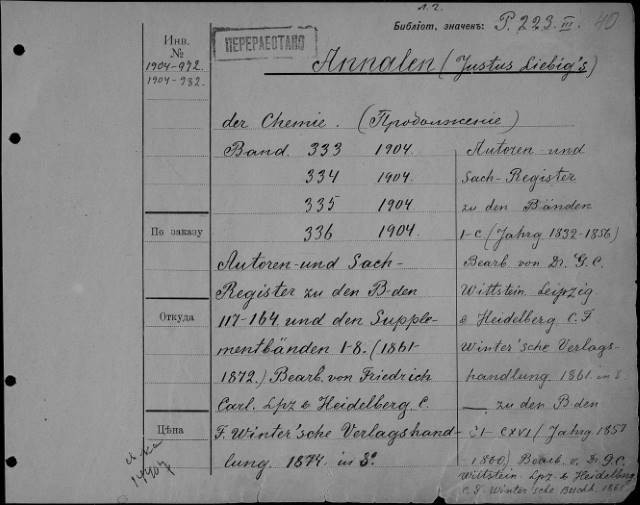 л. 2.
Библіот. значекъ: P. 223. III. 40
ПЕРЕРАБОТАНО
Инв.
№
1904-972.
1904-982.
Annalen (Justus Liebig's)
der Chemie. (Продолженіе)
Band 333 1904.
334 1904.
335 1904
336 1904.
Autoren-und Sach-
Register zu den B-den
117-164. und den Supple-
mentbänden 1-8. (1861-
1872.) Bearb. von Friedrich
Carl. Lpz & Heidelberg. C.
F. Winter'sche Verlagshand-
lung. 1874. in 8°.
Autoren-und
Sach-Register
zu den Bänden
1-C (Jahrg 1832-1856)
Bearb. von Dr. G. C.
Wittstein. Leipzig
& Heidelberg C. F
Winter'sche Verlags-
handlung. 1861. in 8.
— zu den B-den
CI-CXVI (Jahrg 1857
1860) Bearb. v. Dr G. C.
Wittstein. Lpz & Heidelberg
C. F. Winter'sche Buchh. 1861
По заказу
Откуда
Цѣна